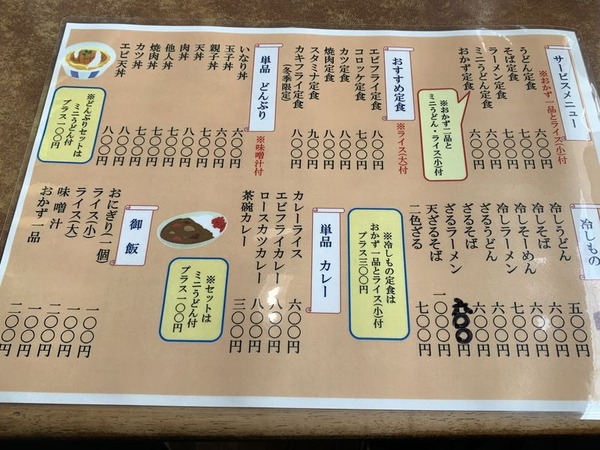 サービスメニュー
※おかず一品とライス(小)付
うどん定食 六〇〇円
そば定食 六〇〇円
ラーメン定食 七〇〇円
ミニうどん定食 六〇〇円
おかず定食 六〇〇円
※おかず二品と
ミニうどん・ライス(小)付
おすすめ定食
※ライス(大)付
エビフライ定食 八〇〇円
コロッケ定食 七〇〇円
カツ定食 八〇〇円
焼肉定食 八〇〇円
スタミナ定食 九〇〇円
カキフライ定食 八〇〇円
(冬季限定)
単品 どんぶり
※味噌汁付
いなり丼 六〇〇円
玉子丼 六〇〇円
親子丼 七〇〇円
天丼 七〇〇円
肉丼 七〇〇円
他人丼 七〇〇円
焼肉丼 八〇〇円
カツ丼 八〇〇円
エビ天丼 八〇〇円
※どんぶりセットは
ミニうどん付
プラス一〇〇円
冷しもの
冷しうどん 五〇〇円
冷しそば 六〇〇円
冷しそーめん 六〇〇円
冷しラーメン 七〇〇円
ざるうどん 六〇〇円
ざるそば 六〇〇円
ざるラーメン 六〇〇円
天ざるそば 一〇〇〇円
二色ざる 七〇〇円
※冷しもの定食は
おかず一品とライス(小)付
プラス三〇〇円
単品 カレー
カレーライス 六〇〇円
エビフライカレー 八〇〇円
ロースカツカレー 八〇〇円
茶碗カレー 三〇〇円
※セットは
ミニうどん付
プラス一〇〇円
御飯
おにぎり一個 一〇〇円
ライス(小) 一〇〇円
ライス(大)
味噌汁
おかず一品 二〇〇円